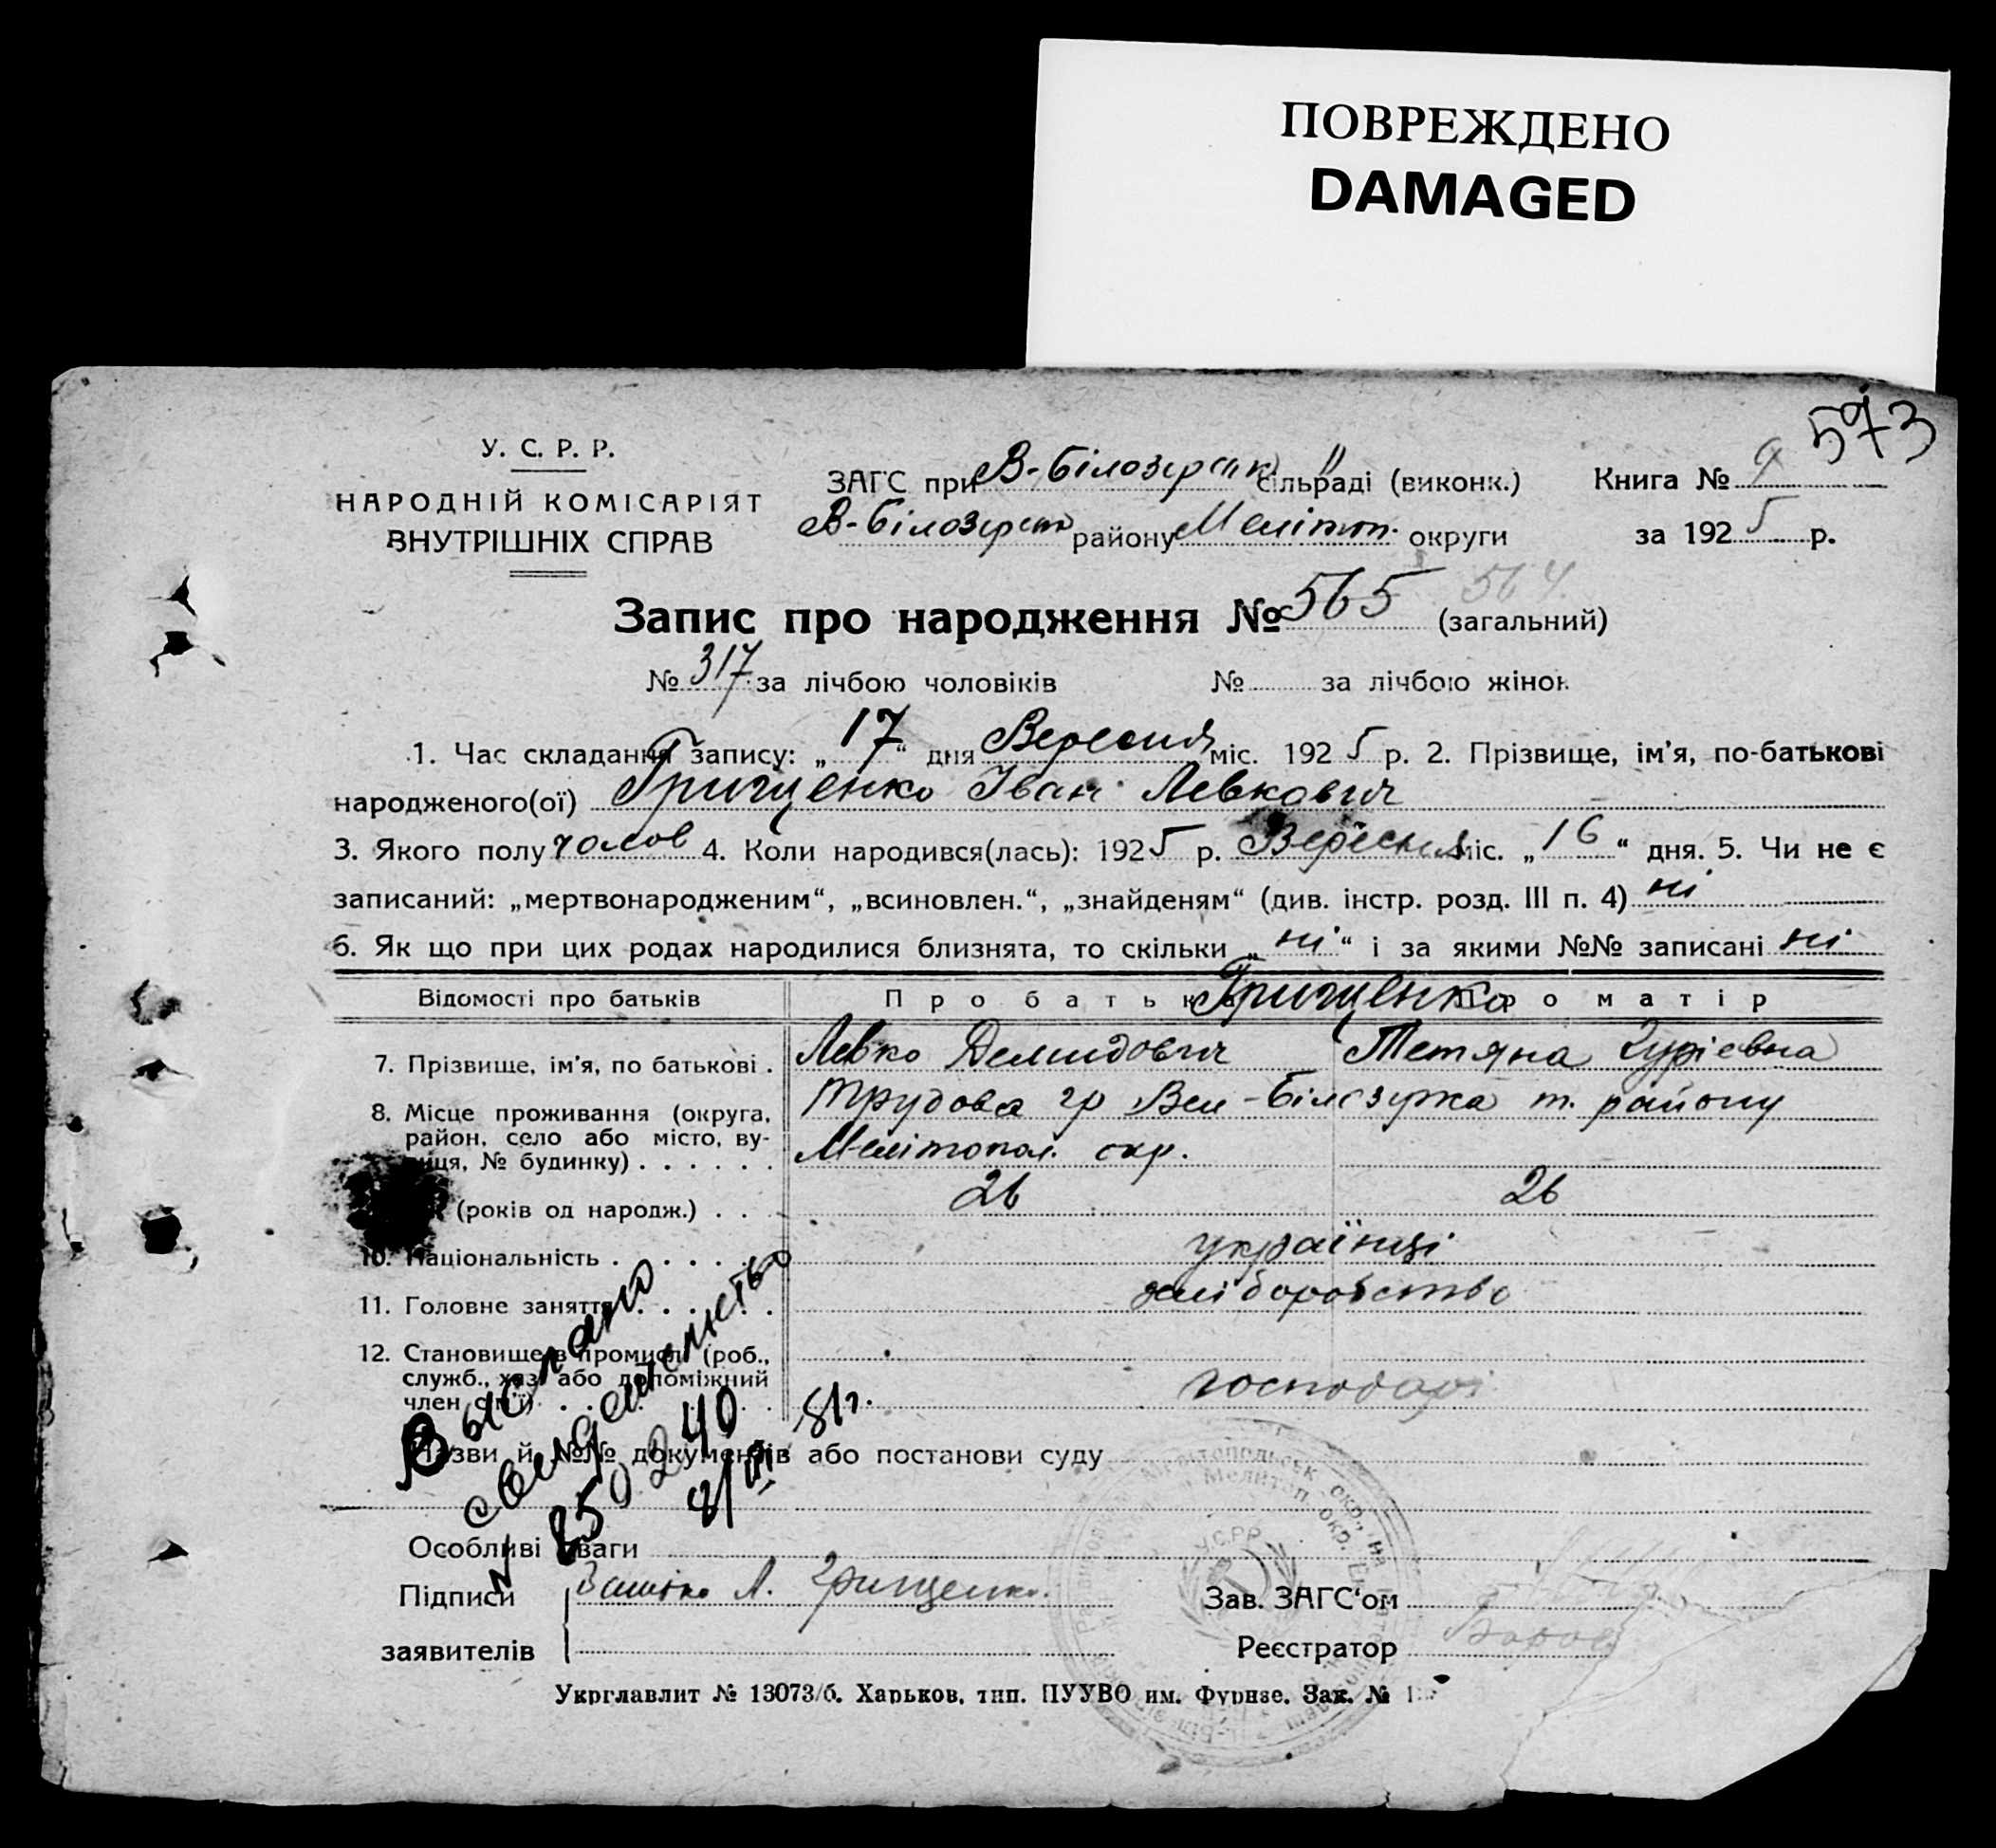 ПОВРЕЖДЕНО
DAMAGED
573
У. С. Р. Р.
НАРОДНІЙ КОМІСАРІЯТ
ВНУТРІШНІХ СПРАВ
ЗАГС при В-Білозерськ сільраді (виконк.) Книга № 9
В-Білозерськ району Меліто. округи за 1925 р.
Запис про народження № 565 564 (загальний)
№ 317 за лічбою чоловіків № за лічбою жінок
1. Час складання запису: „17“ дня Вересня міс. 1925 р. 2. Прізвище, ім'я, по-батькові
народженого(ої) Грищенко Іван Левкович
3. Якого полу чолов 4. Коли народився(лась): 1925 р. Вересня міс. „16“ дня. 5. Чи не є
записаний: „мертвонародженим“, „всиновлен.“, „знайденям“ (див. інстр. розд. III п. 4) ні
6. Як що при цих родах народилися близнята, то скільки „ні“ і за якими №№ записані ні
Відомості про батьків Про батька Грищенко Про матір
7. Прізвище, ім'я, по батькові . Левко Демидович Тетяна Гуріевна
8. Місце проживання (округа, Трудова гр Вел-Білозерка т. району
район, село або місто, ву-
лиця, № будинку) . . . . . . Мелітопол. окр.
(років од народж.) . . 26 26
10. Національність . . . . . . українці
11. Головне заняття . . . . . хліборобство
12. Становище в промислі (роб.,
служб., хаз. або допоміжний
член сім'ї) . . . . . господарі
Назви й №№ документів або постанови суду
Выслано
свидетельство
№ 850240
8/VI 81г.
Особливі уваги
Підписи Грищенко. Зав. ЗАГС'ом
заявителів Реєстратор
Укрглавлит № 13073/б. Харьков, тип. ПУУВО им. Фрунзе. Зак. №
У.С.Р.Р.